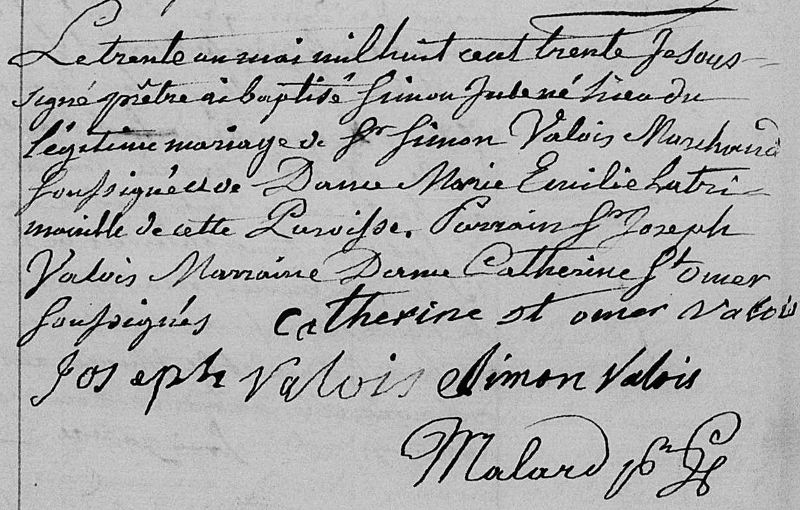 Le trente un mai mil huit cent trente Je sous-
signé prêtre ai baptisé Simon Jule né hier du
légitime mariage de Sr Simon Valois Marchand
soussigné et de Dame Marie Emilie Latri-
mouille de cette Paroisse. Parrain Sr Joseph
Valois Marraine Dame Catherine St omer
soussignés Catherine st omer valois
Joseph Valois Simon Valois
Malard ptr